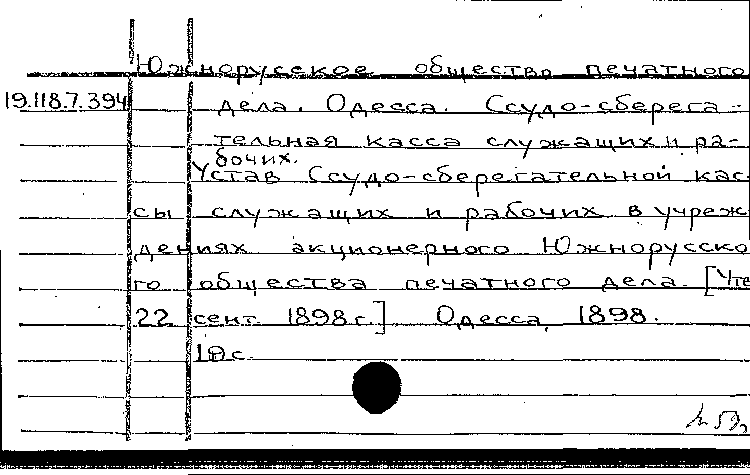 Южнорусское общество печатного
19.118.7.394 дела. Одесса. Ссудо-сберега-
тельная касса служащих и ра-
бочих.
Устав Ссудо-сберегательной кас
сы служащих и рабочих в учреж
дениях акционерного Южнорусско
го общества печатного дела. [Утв
22 сент. 1898 г.] Одесса, 1898.